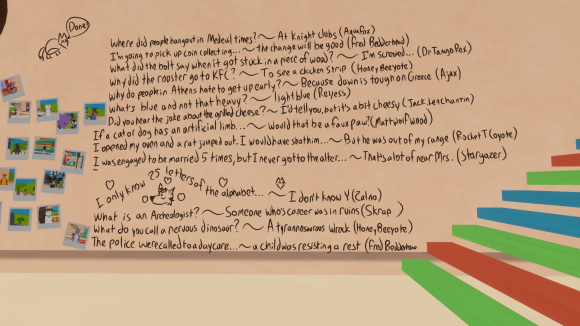 Done!
Where did people hangout in Medeval times? ~ At Knight clubs (Aquafox)
I'm going to pick up coin collecting... ~ the change will be good (Fred Bedderhead)
What did the bolt say when it got stuck in a piece of wood? ~ I'm screwed... (Dr Tango Fox)
Why did the rooster go to KFC? ~ To see a chicken strip (Honey Beeyote)
Why do people in Athens hate to get up early? ~ Because dawn is tough on Greece (Ajax)
What's blue and not that heavy? ~ light blue (Reyess)
Did you hear the joke about the grilled cheese? ~ I'd tell you, but it's a bit cheesy (Jack.Lenchantin)
If a cat or dog has an artificial limb... ~ Would that be a faux paw? (Mattwolf Wood)
I opened my oven and a rat jumped out. I would have shot him... ~ But he was out of my range (Rocket T Coyote)
I was engaged to be married 5 times, but I never got to the alter... ~ That's alot of near Mrs. (Stargazer)
I only know 25 letters of the alphabet... ~ I don't know Y (Calno)
What is an Archeologist? ~ Someone who's career was in ruins (Skrap)
What do you call a nervous dinosaur? ~ A tyrannosaurus wrock (Honey Beeyote)
The police were called to a daycare... ~ a child was resisting a rest (Fred Bedderhead